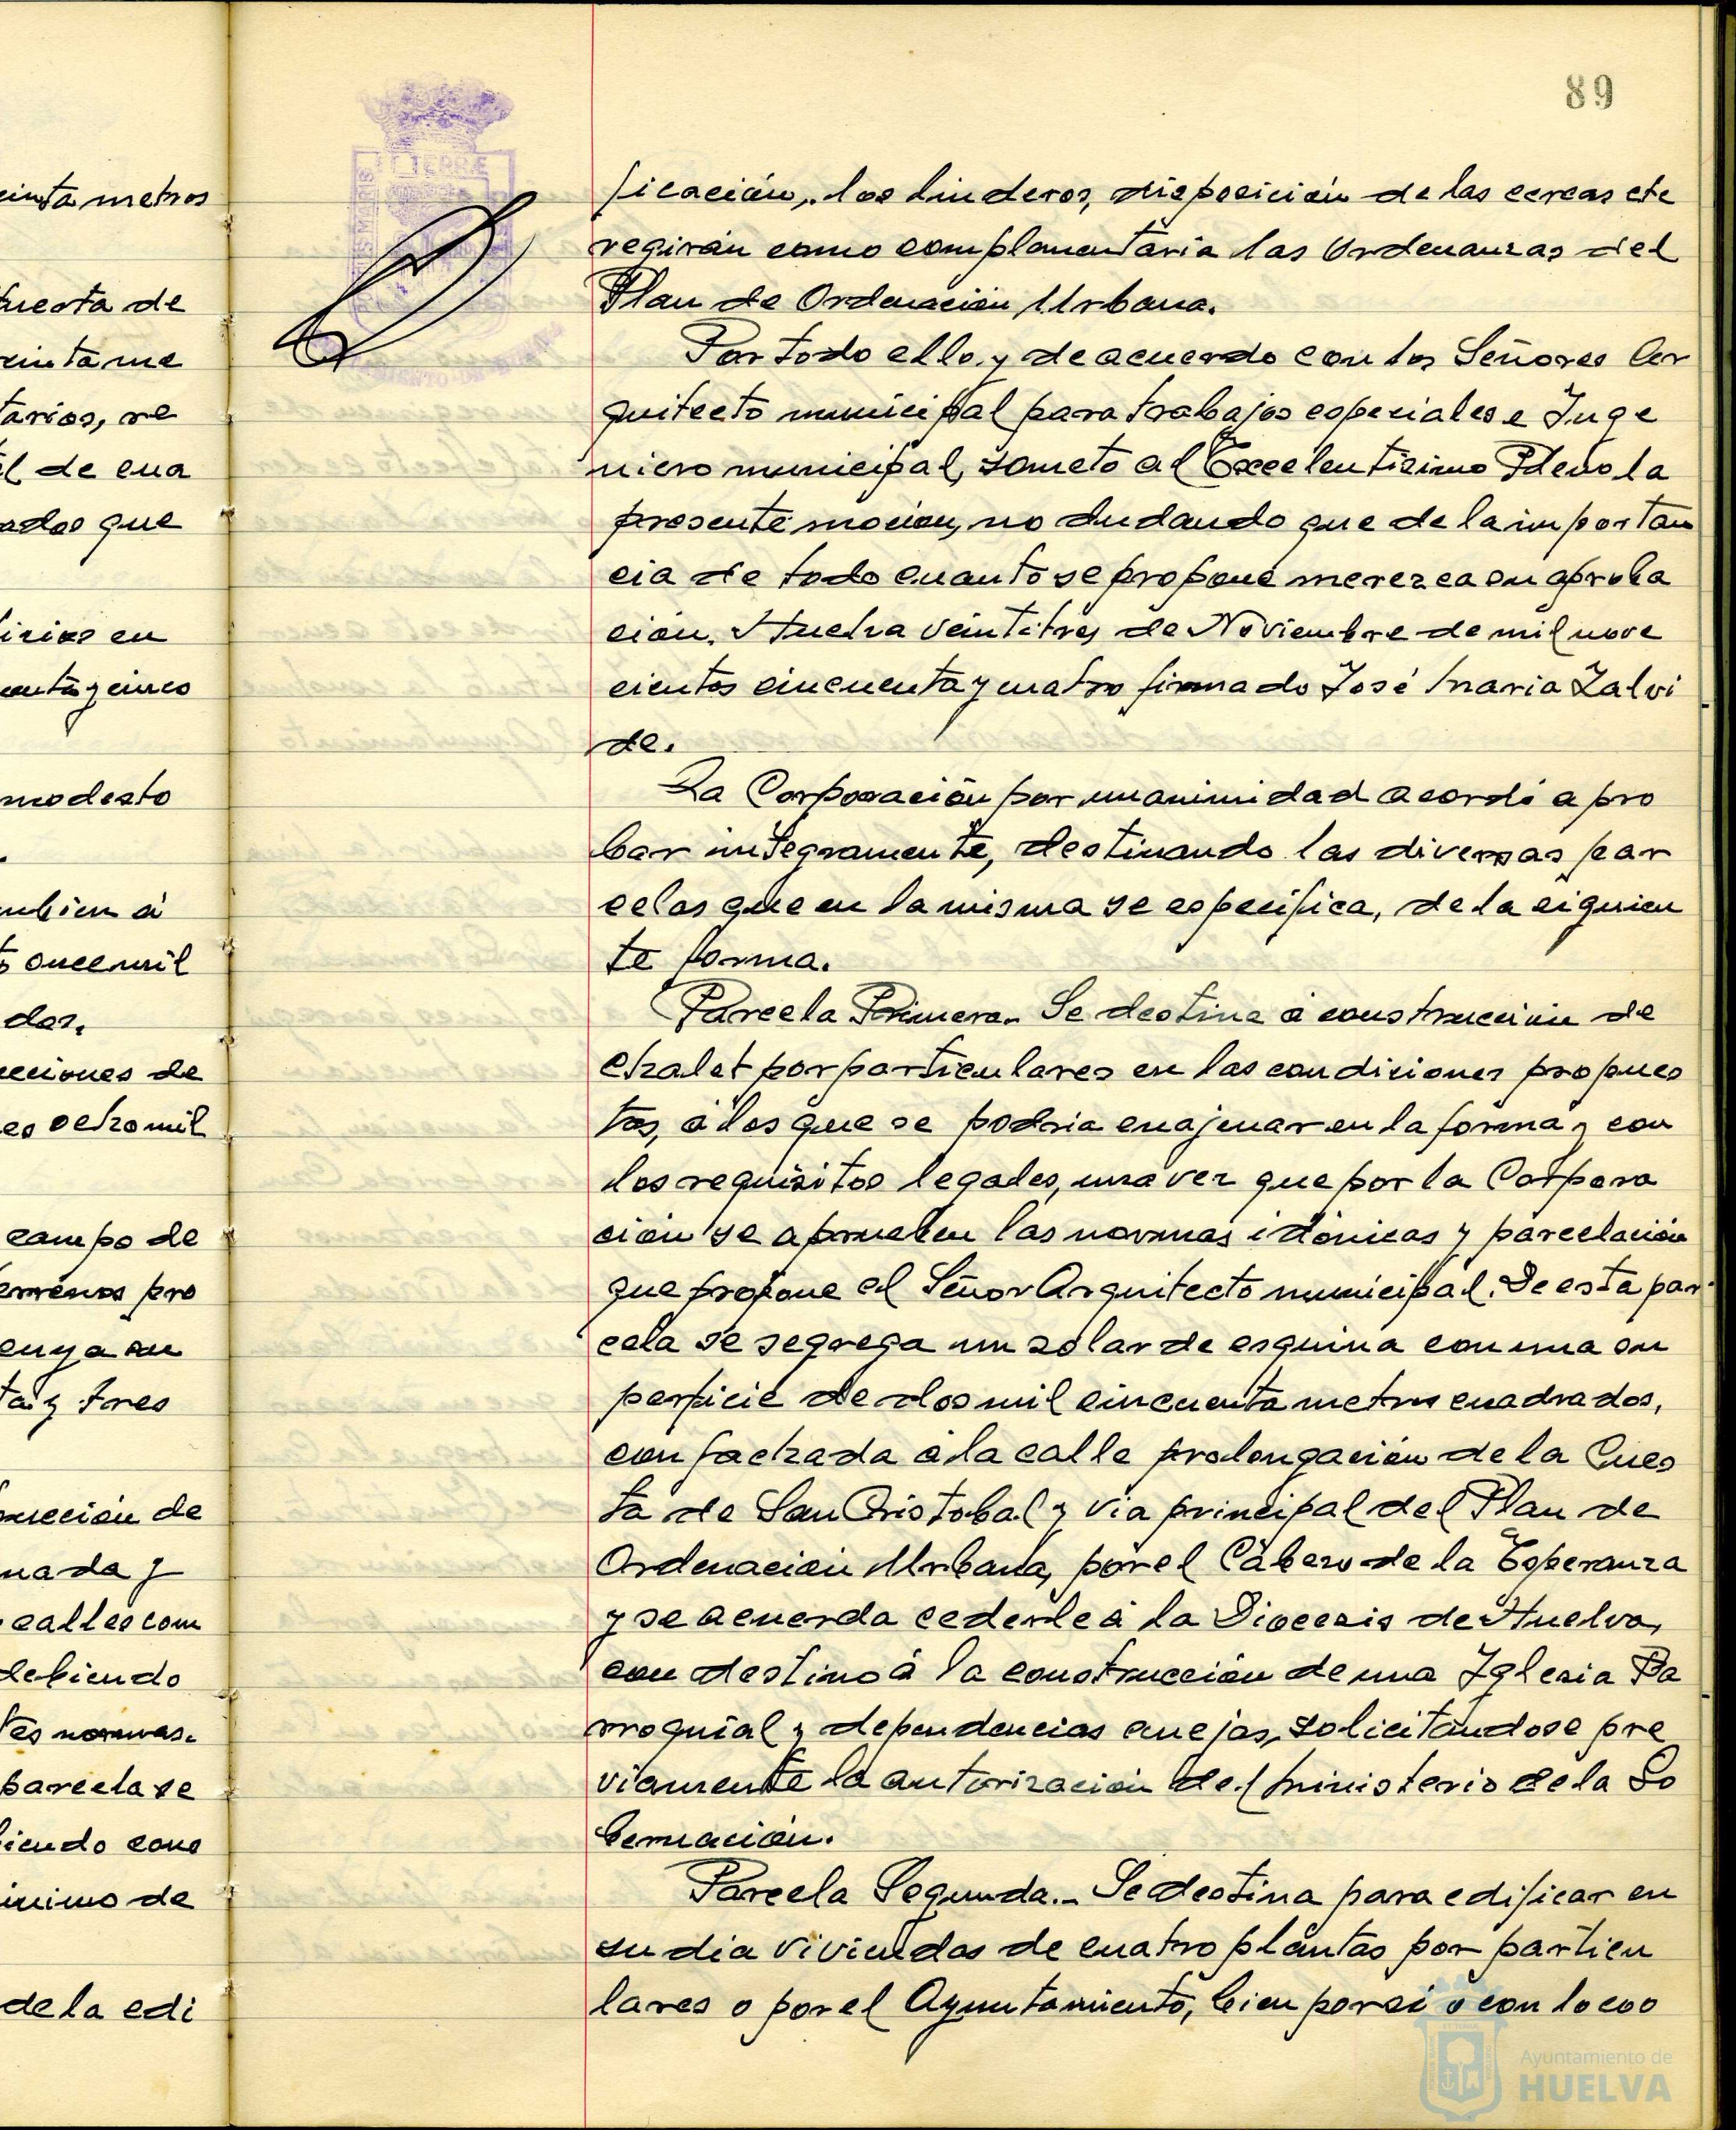 89
einta metros
puesta de
einta me
tarios, re
l de cua
ados que
icios en
enta y cinco
modesto
mbien á
once mil
dos.
cciones de
es ocho mil
campo de
terrenos pro
cuya su
ta y tres
rucción de
nada y
calles com
debiendo
tes normas.
parcela se
iendo cons
inimo de
de la edi
ficación, los linderos, disposición de las cercas etc
regirán como complementaria las Ordenanzas del
Plan de Ordenación Urbana.
Por todo ello y de acuerdo con los Señores Ar
quitecto municipal para trabajos especiales e Inge
niero municipal, someto al Excelentisimo Pleno la
presente mocion, no dudando que de la importan
cia de todo cuanto se propone merezca su aproba
cion. Huelva veintitres de Noviembre de mil nove
cientos cincuenta y cuatro firmado José Maria Zalvi
de.
La Corporación por unanimidad acordó apro
bar integramente, destinando las diversas par
celas que en la misma se especifica, de la siguien
te forma.
Parcela Primera.- Se destina á construccion de
chalet por particulares en las condiciones propues
tas, á los que se podria enajenar en la forma y con
los requisitos legales, una vez que por la Corpora
cion se aprueben las normas idónicas y parcelación
que propone el Señor Arquitecto municipal. De esta par
cela se segrega un solar de esquina con una su
perficie de dos mil cincuenta metros cuadrados,
con fachada á la calle prolongación de la Cues
ta de San Cristobal y via principal del Plan de
Ordenación Urbana, por el Cabezo de la Esperanza
y se acuerda cederle á la Diocesis de Huelva,
con destino á la construcción de una Iglesia Pa
rroquial y dependencias anejas, solicitándose pre
viamente la autorización del Ministerio de la Go
bernación.
Parcela Segunda.- Se destina para edificar en
su dia viviendas de cuatro plantas por particu
lares o por el Ayuntamiento, bien por si o con la coo
Ayuntamiento de
HUELVA